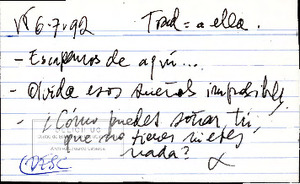 6-7-92 Trad = a ella.
- Escapemos de aquí...
- Olvida esos sueños imposibles.
- ¿Cómo puedes soñar tú,
que no tienes nietes
nada?
DESC